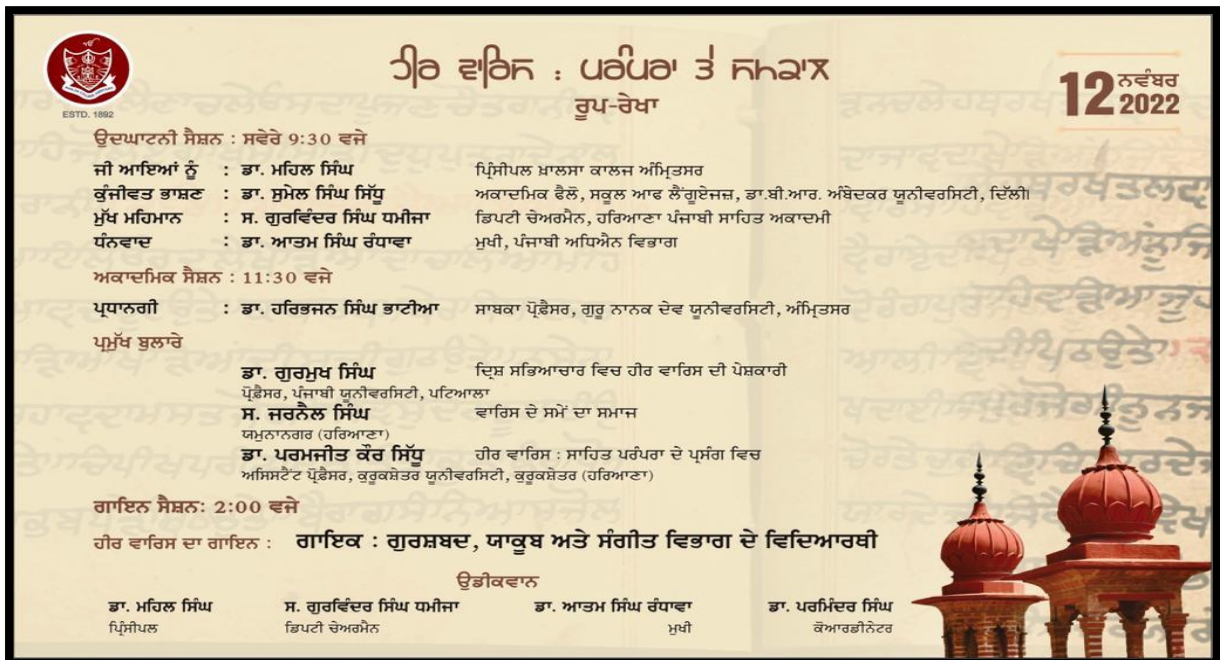 ਹੀਰ ਵਾਰਿਸ : ਪਰੰਪਰਾ ਤੇ ਸਮਕਾਲ
ਰੂਪ-ਰੇਖਾ
12 ਨਵੰਬਰ 2022
ESTD. 1892
ਉਦਘਾਟਨੀ ਸੈਸ਼ਨ : ਸਵੇਰੇ 9:30 ਵਜੇ
ਜੀ ਆਇਆਂ ਨੂੰ : ਡਾ. ਮਹਿਲ ਸਿੰਘ ਪ੍ਰਿੰਸੀਪਲ ਖ਼ਾਲਸਾ ਕਾਲਜ ਅੰਮ੍ਰਿਤਸਰ
ਕੁੰਜੀਵਤ ਭਾਸ਼ਣ : ਡਾ. ਸੁਮੇਲ ਸਿੰਘ ਸਿੱਧੂ ਅਕਾਦਮਿਕ ਫੈਲੋ, ਸਕੂਲ ਆਫ ਲੈਂਗੂਏਜਜ਼, ਡਾ.ਬੀ.ਆਰ. ਅੰਬੇਦਕਰ ਯੂਨੀਵਰਸਿਟੀ, ਦਿੱਲੀ
ਮੁੱਖ ਮਹਿਮਾਨ : ਸ. ਗੁਰਵਿੰਦਰ ਸਿੰਘ ਧਮੀਜਾ ਡਿਪਟੀ ਚੇਅਰਮੈਨ, ਹਰਿਆਣਾ ਪੰਜਾਬੀ ਸਾਹਿਤ ਅਕਾਦਮੀ
ਧੰਨਵਾਦ : ਡਾ. ਆਤਮ ਸਿੰਘ ਰੰਧਾਵਾ ਮੁਖੀ, ਪੰਜਾਬੀ ਅਧਿਐਨ ਵਿਭਾਗ
ਅਕਾਦਮਿਕ ਸੈਸ਼ਨ : 11:30 ਵਜੇ
ਪ੍ਰਧਾਨਗੀ : ਡਾ. ਹਰਿਭਜਨ ਸਿੰਘ ਭਾਟੀਆ ਸਾਬਕਾ ਪ੍ਰੋਫ਼ੈਸਰ, ਗੁਰੂ ਨਾਨਕ ਦੇਵ ਯੂਨੀਵਰਸਿਟੀ, ਅੰਮ੍ਰਿਤਸਰ
ਪ੍ਰਮੁੱਖ ਬੁਲਾਰੇ
ਡਾ. ਗੁਰਮੁਖ ਸਿੰਘ ਦ੍ਰਿਸ਼ ਸਭਿਆਚਾਰ ਵਿਚ ਹੀਰ ਵਾਰਿਸ ਦੀ ਪੇਸ਼ਕਾਰੀ
ਪ੍ਰੋਫ਼ੈਸਰ, ਪੰਜਾਬੀ ਯੂਨੀਵਰਸਿਟੀ, ਪਟਿਆਲਾ
ਸ. ਜਰਨੈਲ ਸਿੰਘ ਵਾਰਿਸ ਦੇ ਸਮੇਂ ਦਾ ਸਮਾਜ
ਯਮੁਨਾਨਗਰ (ਹਰਿਆਣਾ)
ਡਾ. ਪਰਮਜੀਤ ਕੌਰ ਸਿੱਧੂ ਹੀਰ ਵਾਰਿਸ : ਸਾਹਿਤ ਪਰੰਪਰਾ ਦੇ ਪ੍ਰਸੰਗ ਵਿਚ
ਅਸਿਸਟੈਂਟ ਪ੍ਰੋਫ਼ੈਸਰ, ਕੁਰੂਕਸ਼ੇਤਰ ਯੂਨੀਵਰਸਿਟੀ, ਕੁਰੂਕਸ਼ੇਤਰ (ਹਰਿਆਣਾ)
ਗਾਇਨ ਸੈਸ਼ਨ: 2:00 ਵਜੇ
ਹੀਰ ਵਾਰਿਸ ਦਾ ਗਾਇਨ : ਗਾਇਕ : ਗੁਰਸ਼ਬਦ, ਯਾਕੂਬ ਅਤੇ ਸੰਗੀਤ ਵਿਭਾਗ ਦੇ ਵਿਦਿਆਰਥੀ
ਉਡੀਕਵਾਨ
ਡਾ. ਮਹਿਲ ਸਿੰਘ ਸ. ਗੁਰਵਿੰਦਰ ਸਿੰਘ ਧਮੀਜਾ ਡਾ. ਆਤਮ ਸਿੰਘ ਰੰਧਾਵਾ ਡਾ. ਪਰਮਿੰਦਰ ਸਿੰਘ
ਪ੍ਰਿੰਸੀਪਲ ਡਿਪਟੀ ਚੇਅਰਮੈਨ ਮੁਖੀ ਕੋਆਰਡੀਨੇਟਰ